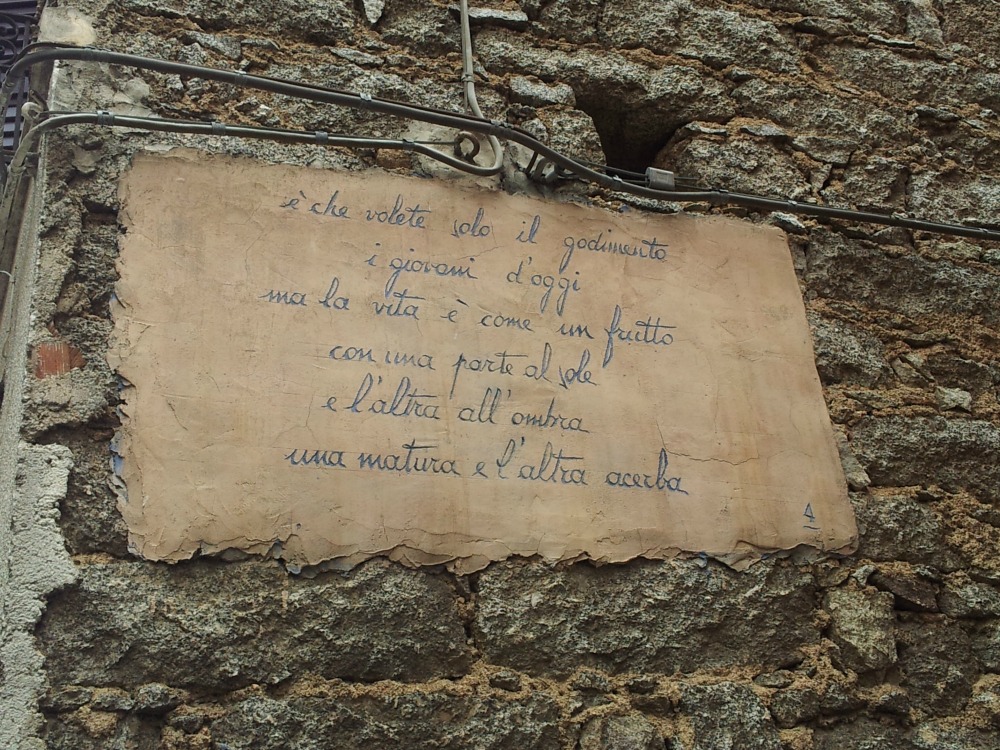 è che volete solo il godimento
i giovani d'oggi
ma la vita è come un frutto
con una parte al sole
e l'altra all'ombra
una matura e l'altra acerba
4